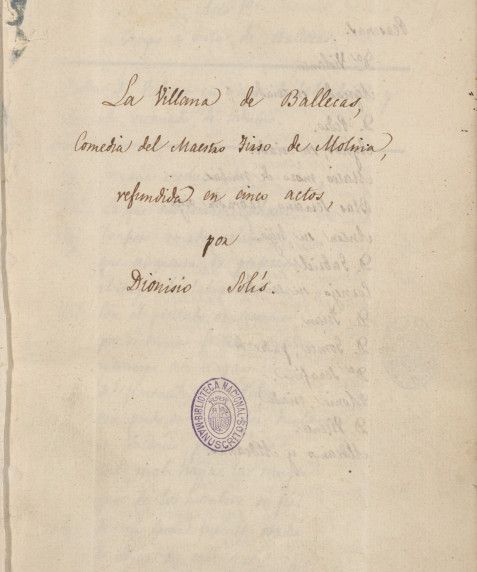 La Villana de Ballecas,
Comedia del Maestro Tirso de Molina,
refundida en cinco actos,
por
Dionisio Solís.
BIBLIOTECA NACIONAL
MANUSCRITOS